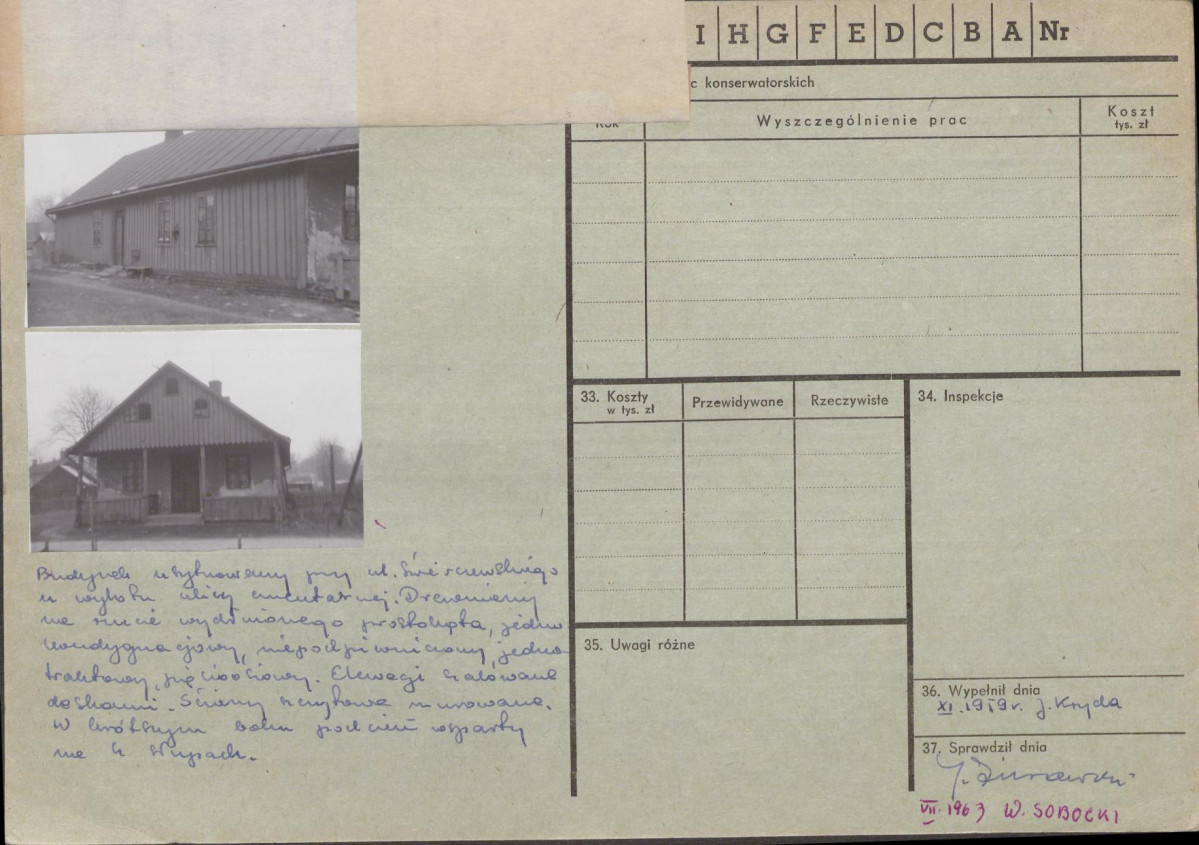 I H G F E D C B A Nr
c konserwatorskich
Rok Wyszczególnienie prac Koszt
tys. zł
33. Koszty
w tys. zł
Przewidywane Rzeczywiste
34. Inspekcje
35. Uwagi różne
36. Wypełnił dnia
XI. 1959r. J. Kryda
37. Sprawdził dnia
VII. 1963 W. SOBOCKI
Budynek usytuowany przy ul. Świerczewskiego
u wylotu ulicy cmentarnej. Drewniany
na rzucie wydłużonego prostokąta, jedno
kondygnacjowy, niepodpiwniczony, jedno
traktowy, pięcioosiowy. Elewacje szalowane
deskami. Ściany szczytowe murowane.
W krótszym boku podcień wsparty
na 4 słupach.